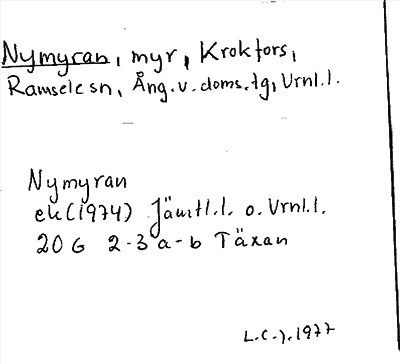 Nymyran, myr, Krokfors,
Ramsele sn, Ång.v.doms.tg, Vrnl.l.
Nymyran
ek (1974) Jämtl.l. o. Vrnl.l.
20 G 2-3 a-b Täxan
L.C.J. 1977